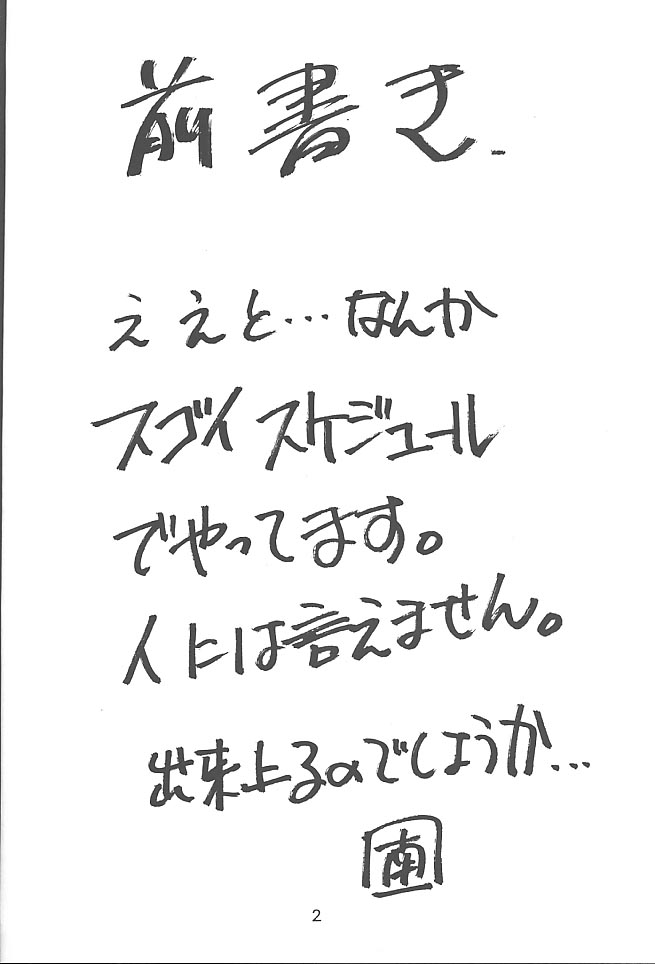 前書き
ええと…なんか
スゴイスケジュール
でやってます。
人には言えません。
出来上るのでしょうか…
南
2